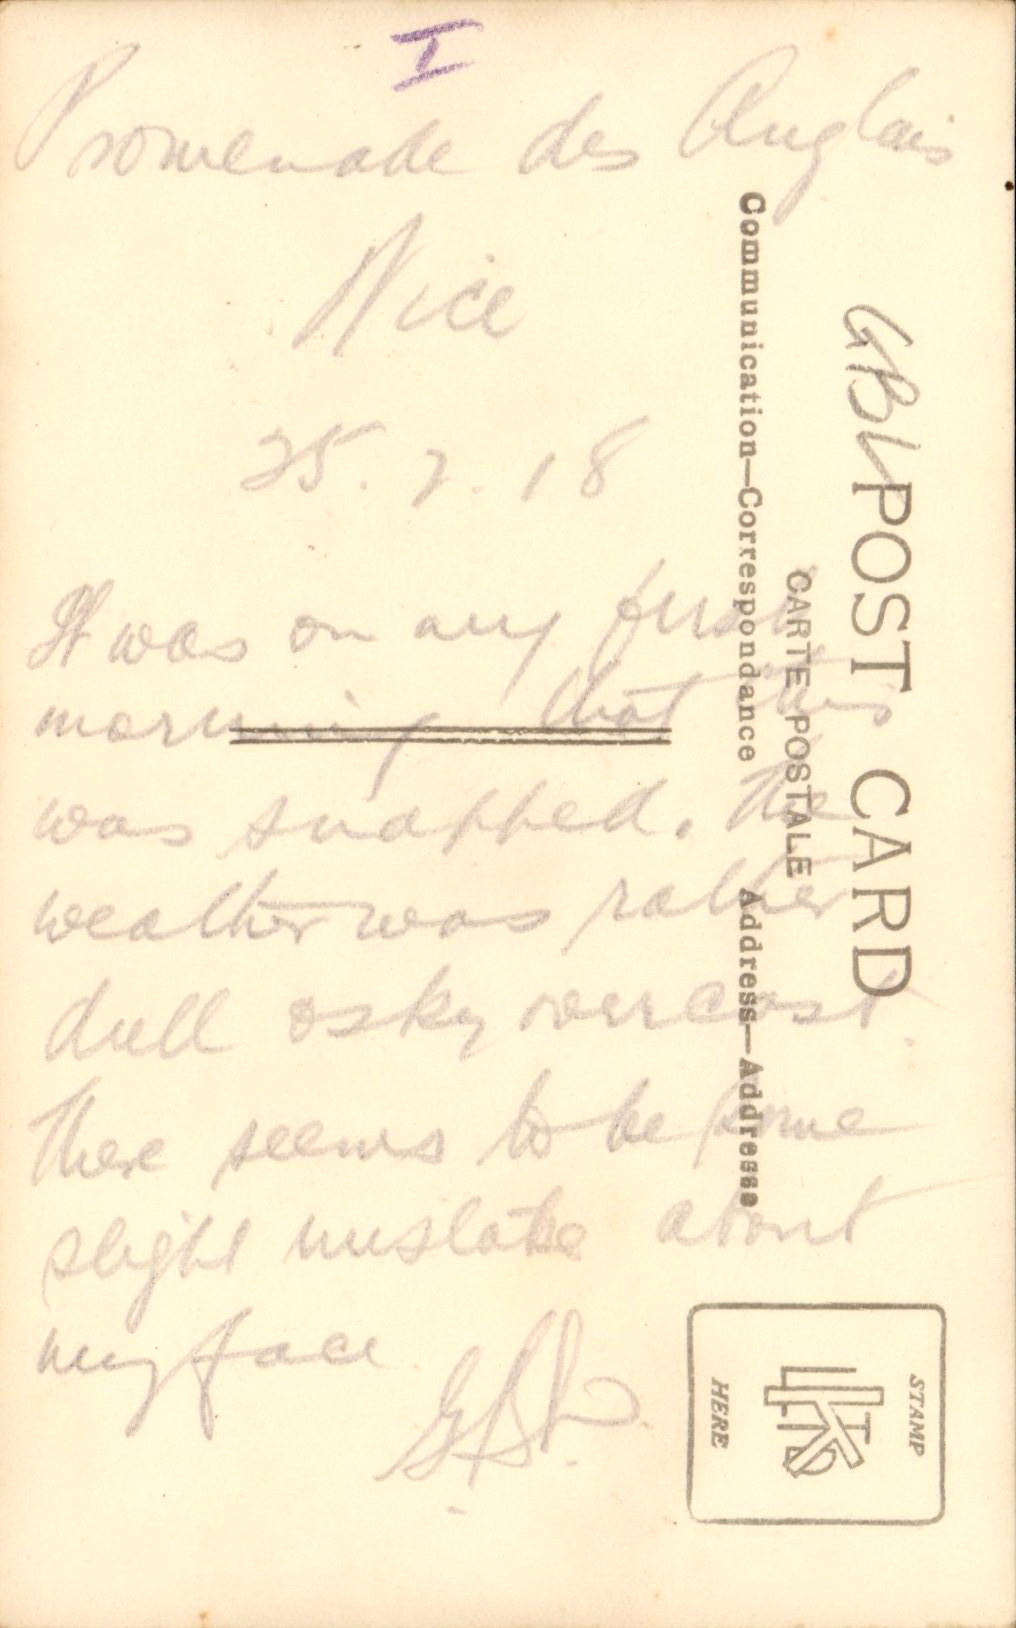 I
Promenade des Anglais
Nice
25. 2. 18
It was on my first
morning that this
was snapped. The
weather was rather
dull & sky overcast.
There seems to be some
slight mistake about
my face
GBL
POST CARD
CARTE POSTALE
Communication—Correspondance Address—Addresse
STAMP
HERE